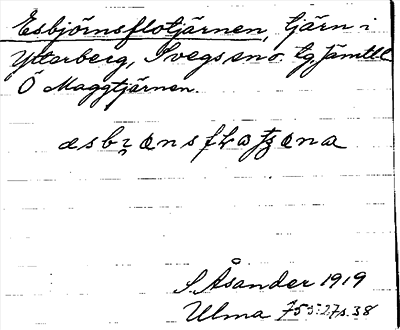 Esbjörnsflotjärnen, tjärn i
Ytterberg, Svegs sn o. tg, Jämtl.
Ö Maggtjärnen.
S Åsander 1919
Ulma 755:27 s. 38